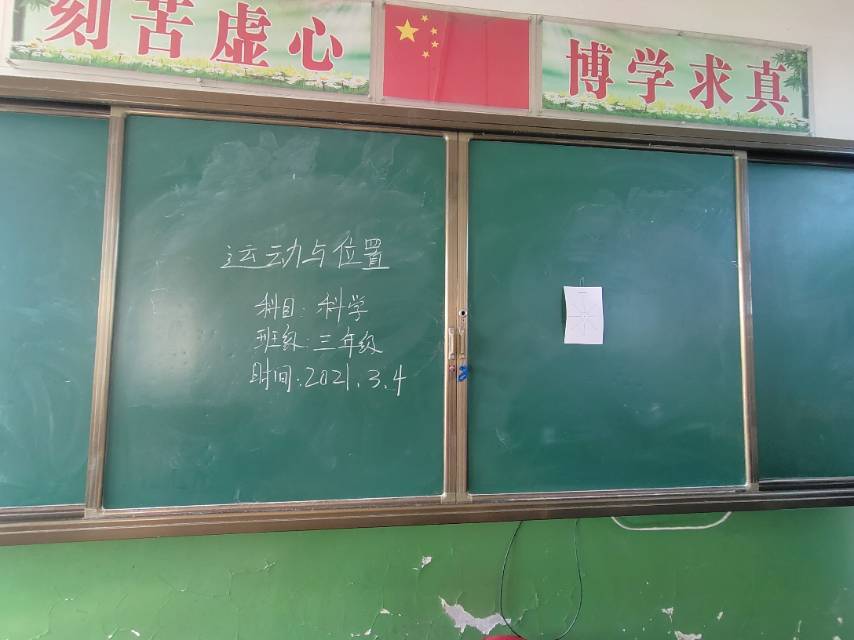 刻苦虚心
博学求真
运动与位置
科目:科学
班级:三年级
时间:2021.3.4